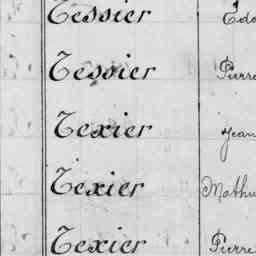 Tessier
Tessier Pierre
Texier Jean
Texier
Texier Pierre